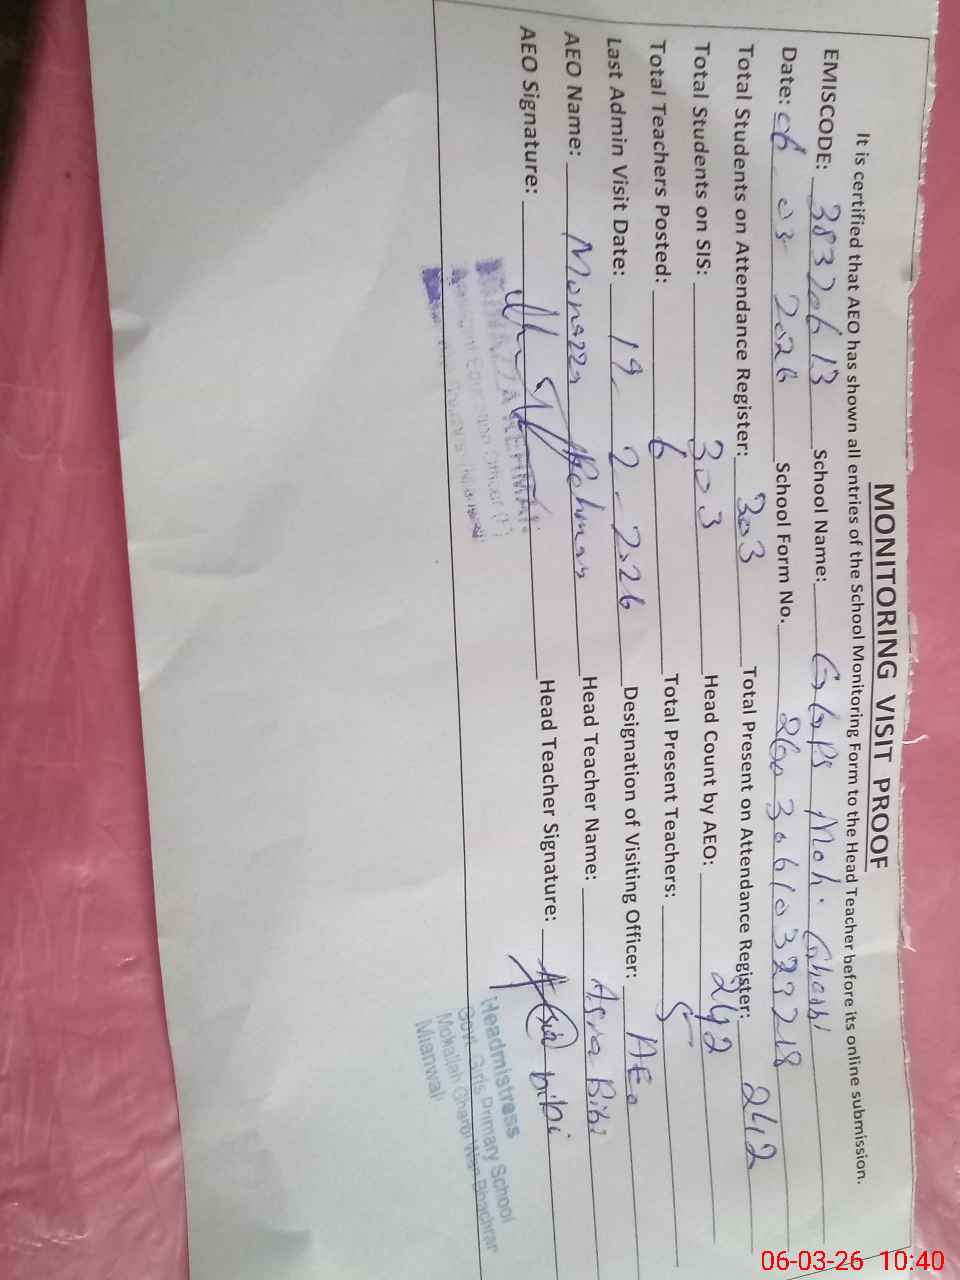 MONITORING VISIT PROOF
It is certified that AEO has shown all entries of the School Monitoring Form to the Head Teacher before its online submission.
EMISCODE: 38320613 School Name: GGPS Moh.
Date: 06.03.2026 School Form No.
Total Students on Attendance Register: 303 Total Present on Attendance Register: 242
Total Students on SIS: 303 Head Count by AEO: 242
Total Teachers Posted: 6 Total Present Teachers: 5
Last Admin Visit Date: 19-2-2026 Designation of Visiting Officer: AEO
AEO Name: Monazza Rehman Head Teacher Name: Asia Bibi
AEO Signature: Head Teacher Signature: Asia bibi
Headmistress
Govt. Girls Primary School
Mianwali
06-03-26 10:40